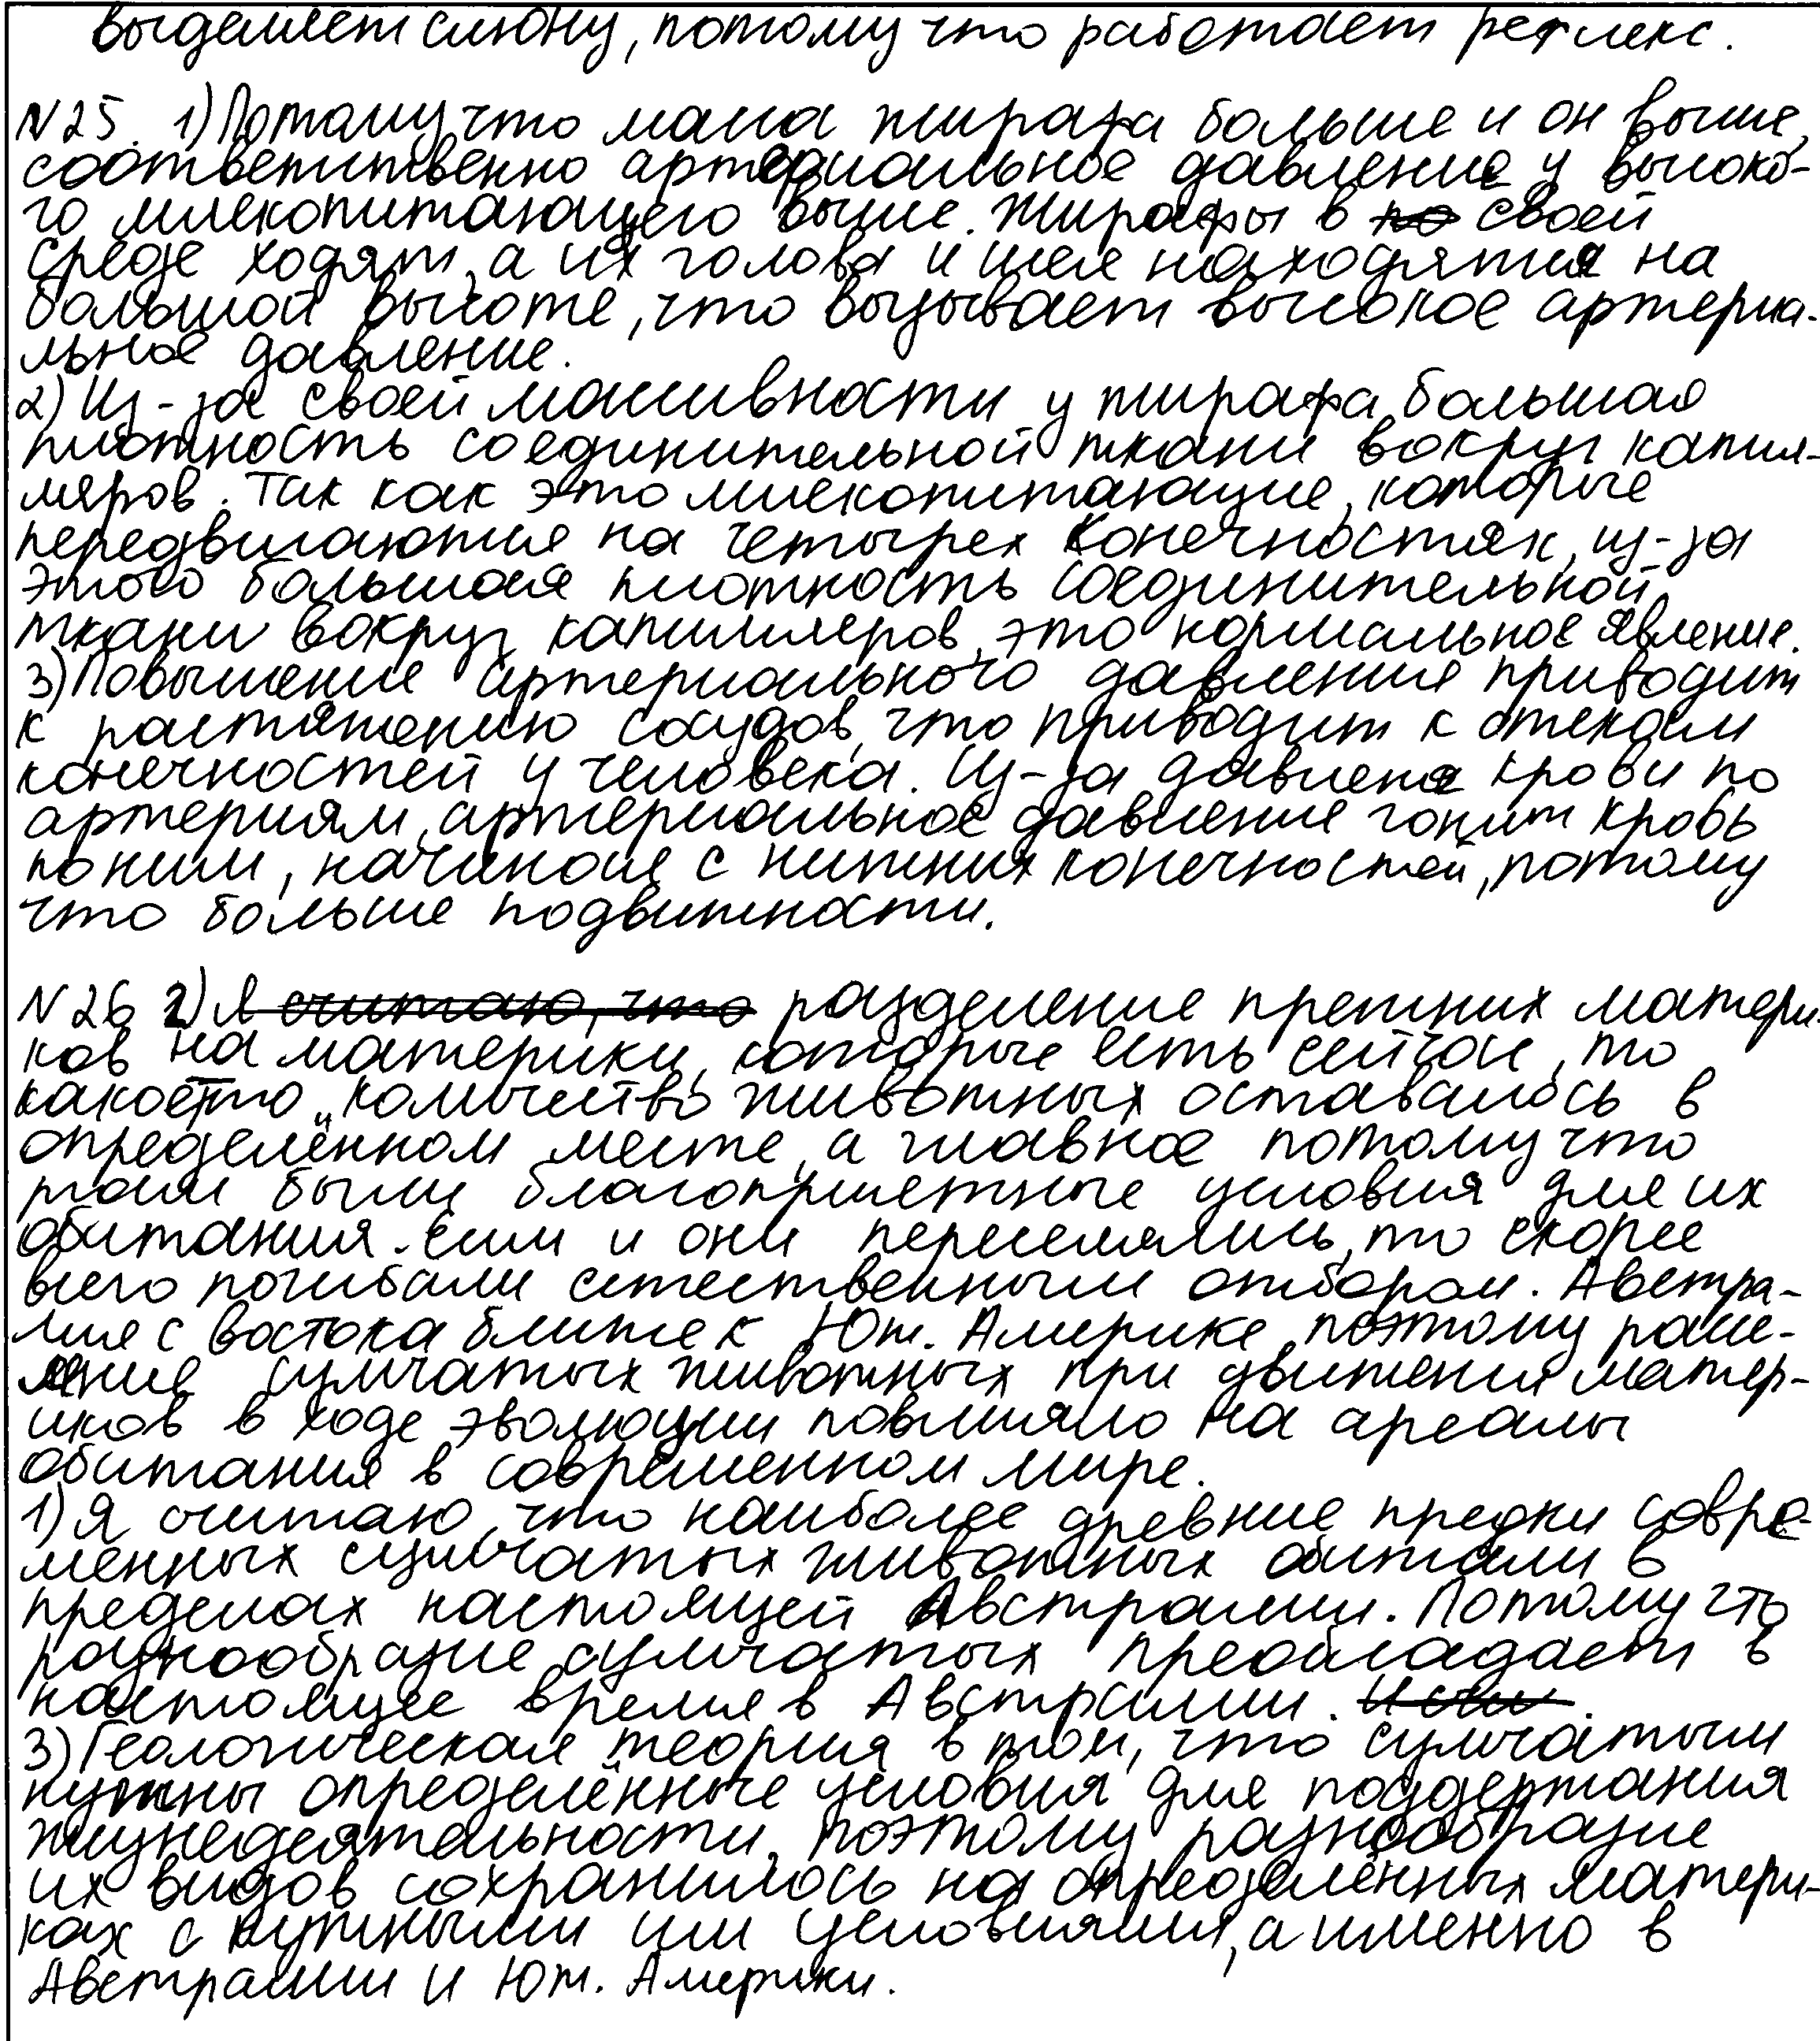 выделяет слюну, потому что работает рефлекс.
№25. 1) Потому что масса жирафа больше и он выше,
соответственно артериальное давление у высоко-
го млекопитающего выше. Жирафы в по своей
среде ходят, а их голова и шея находятся на
большой высоте, что вызывает высокое артериа-
льное давление.
2) Из-за своей массивности у жирафа большая
плотность соединительной ткани вокруг капил-
ляров. Так как это млекопитающие, которые
передвигаются на четырех конечностях, из-за
этого большая плотность соединительной
ткани вокруг капилляров, это нормальное явление.
3) Повышение артериального давления приводит
к растяжению сосудов, что приводит к отекам
конечностей у человека. Из-за давлена крови по
артериям, артериальное давление гонит кровь
по ним, начиная с нижних конечностей, потому
что больше подвижности.
№26 2) Я считаю, что разделение прежних матери-
ков на материки, которые есть сейчас, то
какое-то количество животных оставалось в
определённом месте, а главное потому что
там были благоприятные условия для их
обитания. Если и они переселялись, то скорее
всего погибали естественным отбором. Австра-
лия с востока ближе к Юж. Америке, поэтому рассе-
ление сумчатых животных при движении матер-
иков в ходе эволюции повлияло на ареалы
обитания в современном мире.
1) Я считаю, что наиболее древние предки совре-
менных сумчатых животных обитали в
пределах настоящей Австралии. Потому что
разнообразие сумчатых преобладает в
настоящее время в Австралии. И они.
3) Геологическая теория в том, что сумчатым
нужны определённые условия для поддержания
жизнедеятельности, поэтому разнообразие
их видов сохранилось на определённых матери-
ках с нужными им условиями, а именно в
Австралии и Юж. Америки.